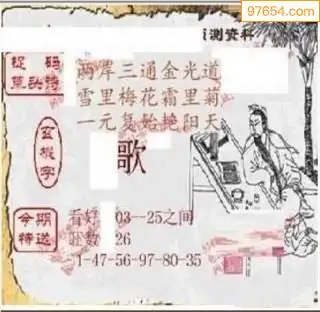 97654.com
预测资料
捉码
草头诗
两岸三通金光道
雪里梅花霜里菊
一元复始艳阳天
玄机字
歌
今期特送
看好 03—25之间
旺数 26
1-47-56-97-80-35